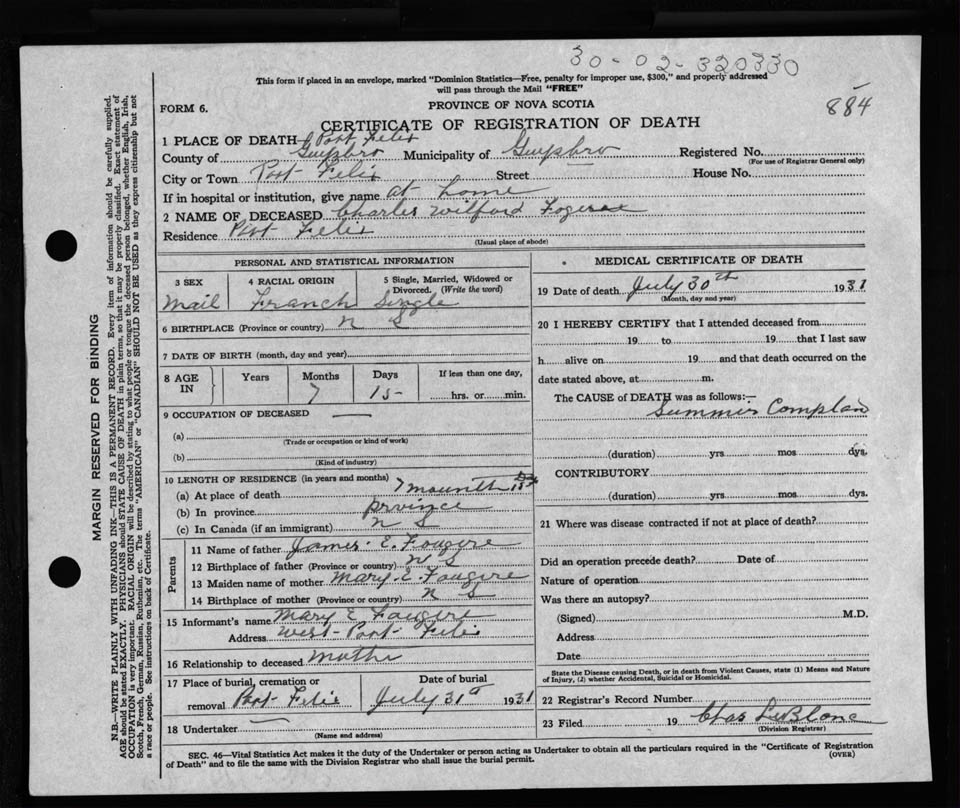 30-02-320330
This form if placed in an envelope, marked "Dominion Statistics—Free, penalty for improper use, $300," and properly addressed
will pass through the Mail "FREE"
FORM 6.
PROVINCE OF NOVA SCOTIA
884
CERTIFICATE OF REGISTRATION OF DEATH
1 PLACE OF DEATH Port Felix
County of Guysbro Municipality of Guysbro Registered No.
(For use of Registrar General only)
City or Town Port Felix Street House No.
If in hospital or institution, give name at home
2 NAME OF DECEASED Charles Wilford
Residence Port Felix
(Usual place of abode)
PERSONAL AND STATISTICAL INFORMATION
3 SEX 4 RACIAL ORIGIN 5 Single, Married, Widowed or
Divorced. (Write the word)
Mail Franch Single
6 BIRTHPLACE (Province or country) N S
7 DATE OF BIRTH (month, day and year)
8 AGE IN Years Months Days If less than one day,
7 15 hrs. or min.
9 OCCUPATION OF DECEASED —
(a)
(Trade or occupation or kind of work)
(b)
(Kind of industry)
10 LENGTH OF RESIDENCE (in years and months)
(a) At place of death 7 mounth 15
(b) In province prvince
(c) In Canada (if an immigrant) N S
Parents
11 Name of father James. E. Fougire
12 Birthplace of father (Province or country) N S
13 Maiden name of mother Mary. E. Fougire
14 Birthplace of mother (Province or country) N S
15 Informant's name Mary E Fougire
Address West-Port-Felix
16 Relationship to deceased Mothe
17 Place of burial, cremation or
removal Port Felix
Date of burial
July 31st 1931
18 Undertaker —
(Name and address)
MEDICAL CERTIFICATE OF DEATH
19 Date of death July 30th 1931
(Month, day and year)
20 I HEREBY CERTIFY that I attended deceased from
19 to 19 that I last saw
h alive on 19 and that death occurred on the
date stated above, at m.
The CAUSE of DEATH was as follows:—
Summer Complan
(duration) yrs mos dys.
CONTRIBUTORY
(duration) yrs mos dys.
21 Where was disease contracted if not at place of death?
Did an operation precede death? Date of
Nature of operation
Was there an autopsy?
(Signed) M.D.
Address
Date
State the Disease causing Death, or in death from Violent Causes, state (1) Means and Nature
of Injury, (2) whether Accidental, Suicidal or Homicidal.
22 Registrar's Record Number
23 Filed 19 Chas LeBlanc
(Division Registrar)
SEC. 46—Vital Statistics Act makes it the duty of the Undertaker or person acting as Undertaker to obtain all the particulars required in the "Certificate of Registration
of Death" and to file the same with the Division Registrar who shall issue the burial permit.
(OVER)
MARGIN RESERVED FOR BINDING
N.B.—WRITE PLAINLY WITH UNFADING INK—THIS IS A PERMANENT RECORD. Every item of information should be carefully supplied.
AGE should be stated EXACTLY. PHYSICIANS should STATE CAUSE OF DEATH in plain terms, so that it may be properly classified. Exact statement of
OCCUPATION is very important. RACIAL ORIGIN will be described by stating to what people or tongue the deceased person belonged, whether English, Irish,
Scotch, French, German, Russian, Ruthenian, etc. The terms "AMERICAN" or "CANADIAN" SHOULD NOT BE USED as they express citizenship but not
a race or people. See instructions on back of Certificate.